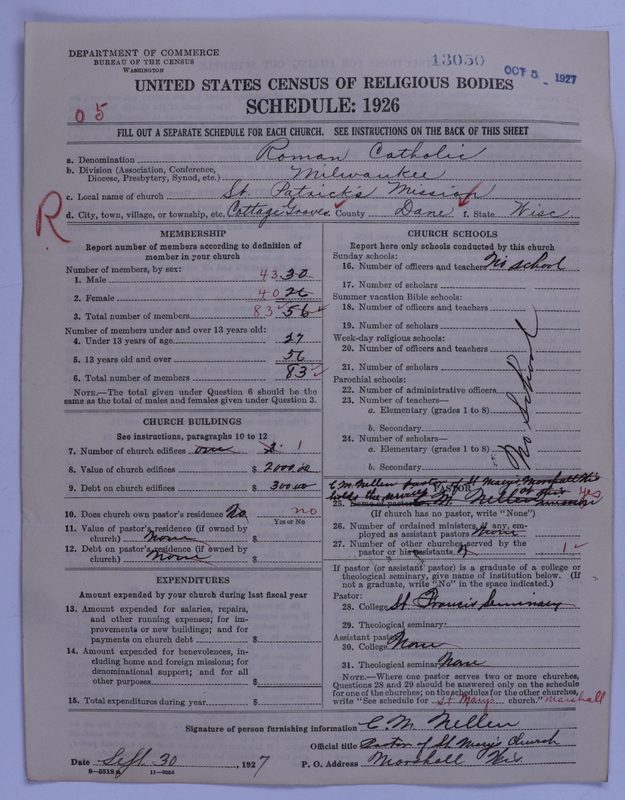 DEPARTMENT OF COMMERCE
BUREAU OF THE CENSUS
WASHINGTON
13050
OCT 5 1927
UNITED STATES CENSUS OF RELIGIOUS BODIES
SCHEDULE: 1926
05
FILL OUT A SEPARATE SCHEDULE FOR EACH CHURCH. SEE INSTRUCTIONS ON THE BACK OF THIS SHEET
a. Denomination Roman Catholic
b. Division (Association, Conference, Diocese, Presbytery, Synod, etc.) Milwaukee
c. Local name of church St. Patrick's Mission
R
d. City, town, village, or township, etc. Cottage Grove e. County Dane f. State Wisc
MEMBERSHIP
Report number of members according to definition of
member in your church
Number of members, by sex:
1. Male 43 30
2. Female 40 26
3. Total number of members 83 56
Number of members under and over 13 years old:
4. Under 13 years of age 27
5. 13 years old and over 56
6. Total number of members 83
NOTE.—The total given under Question 6 should be
the same as the total of males and females given under Question 3.
CHURCH BUILDINGS
See instructions, paragraphs 10 to 12
7. Number of church edifices one 1
8. Value of church edifices $ 2000.00
9. Debt on church edifices $ 300.00
10. Does church own pastor's residence? No no
Yes or No
11. Value of pastor's residence (if owned by
church) None $
12. Debt on pastor's residence (if owned by
church) None $
EXPENDITURES
Amount expended by your church during last fiscal year
13. Amount expended for salaries, repairs,
and other running expenses; for im-
provements or new buildings; and for
payments on church debt $
14. Amount expended for benevolences, in-
cluding home and foreign missions; for
denominational support; and for all
other purposes $
15. Total expenditures during year $
CHURCH SCHOOLS
Report here only schools conducted by this church
Sunday schools:
16. Number of officers and teachers No school
17. Number of scholars
Summer vacation Bible schools:
18. Number of officers and teachers
19. Number of scholars
Week-day religious schools:
20. Number of officers and teachers
21. Number of scholars
Parochial schools:
22. Number of administrative officers
23. Number of teachers—
a. Elementary (grades 1 to 8)
b. Secondary
24. Number of scholars—
a. Elementary (grades 1 to 8)
b. Secondary
No School
C. M. Nellen pastor of St Mary's Marshall Wis
holds the services at this mission
PASTOR
25. Name of pastor C. M. Nellen yes
(If church has no pastor, write "None")
26. Number of ordained ministers, if any, em-
ployed as assistant pastors None
27. Number of other churches served by the
pastor or his assistants 1
If pastor (or assistant pastor) is a graduate of a college or
theological seminary, give name of institution below. (If
not a graduate, write "No" in the space indicated.)
Pastor:
28. College St Francis Seminary
29. Theological seminary:
Assistant pastor:
30. College None
31. Theological seminary None
NOTE.—Where one pastor serves two or more churches,
Questions 28 and 29 should be answered only on the schedule
for one of the churches; on the schedules for the other churches,
write "See schedule for St Mary's church." Marshall
Signature of person furnishing information C. M. Nellen
Official title Pastor of St Mary's Church
Date Sept 30, 1927 P. O. Address Marshall Wis.
11—9034